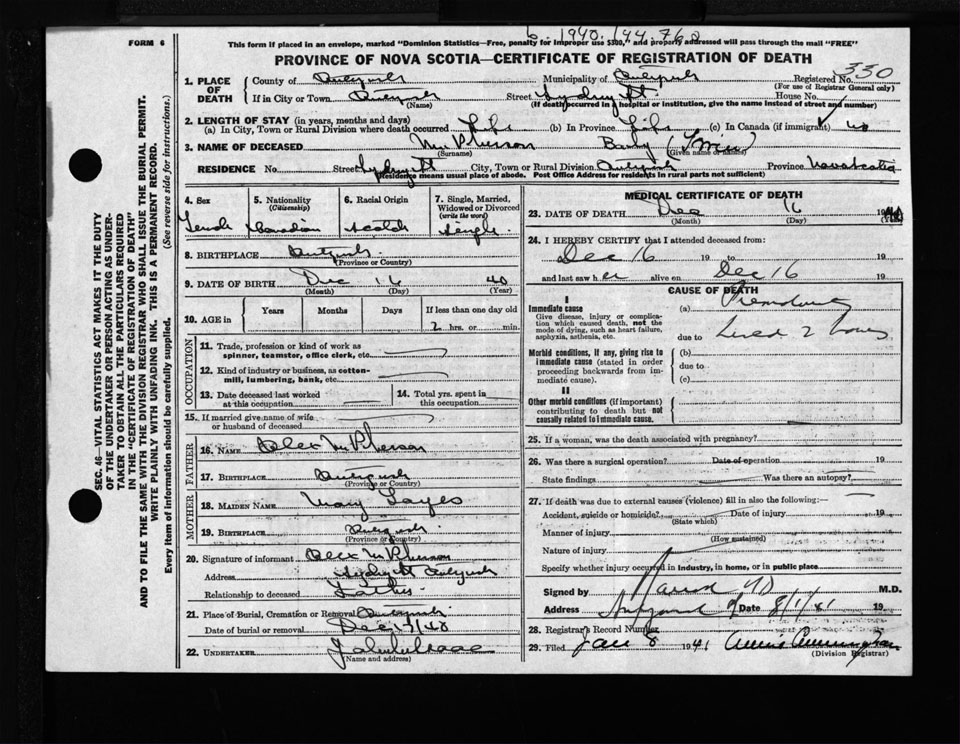 6. 1940. 144. 760
FORM 6
This form if placed in an envelope, marked "Dominion Statistics—Free, penalty for improper use $300," and properly addressed will pass through the mail "FREE"
PROVINCE OF NOVA SCOTIA—CERTIFICATE OF REGISTRATION OF DEATH
1. PLACE OF DEATH
County of
Municipality of
Registered No. 330
(For use of Registrar General only)
If in City or Town
(Name)
Street Sydney St.
House No.
(If death occurred in a hospital or institution, give the name instead of street and number)
2. LENGTH OF STAY (in years, months and days)
(a) In City, Town or Rural Division where death occurred Life (b) In Province Life (c) In Canada (if immigrant)
3. NAME OF DECEASED McPherson Baby (Twin)
(Surname) (Given name or names)
RESIDENCE No. Street Sydney St City, Town or Rural Division Province Nova Scotia
(Residence means usual place of abode. Post Office Address for residents in rural parts not sufficient)
4. Sex
Female
5. Nationality (Citizenship)
Canadian
6. Racial Origin
Scotch
7. Single, Married, Widowed or Divorced (write the word)
Single
8. BIRTHPLACE
(Province or Country)
9. DATE OF BIRTH Dec 16 40
(Month) (Day) (Year)
10. AGE in Years Months Days If less than one day old
2 hrs. or min.
OCCUPATION
11. Trade, profession or kind of work as spinner, teamster, office clerk, etc.
12. Kind of industry or business, as cotton-mill, lumbering, bank, etc.
13. Date deceased last worked at this occupation
14. Total yrs. spent in this occupation
15. If married give name of wife or husband of deceased
FATHER
16. NAME Alex McPherson
17. BIRTHPLACE
(Province or Country)
MOTHER
18. MAIDEN NAME Mary
19. BIRTHPLACE
(Province or Country)
20. Signature of informant Alex McPherson
Address Sydney St
Relationship to deceased Father
21. Place of Burial, Cremation or Removal
Date of burial or removal Dec 17/40
22. UNDERTAKER
(Name and address)
MEDICAL CERTIFICATE OF DEATH
23. DATE OF DEATH Dec 16 1940
(Month) (Day) (Year)
24. I HEREBY CERTIFY that I attended deceased from:
Dec 16 19 to 19
and last saw her alive on Dec 16 19
CAUSE OF DEATH
I
Immediate cause
Give disease, injury or complication which caused death, not the mode of dying, such as heart failure, asphyxia, asthenia, etc.
(a) Prematurity
due to Lived 2 hours
Morbid conditions, if any, giving rise to immediate cause (stated in order proceeding backwards from immediate cause).
(b)
due to
(c)
II
Other morbid conditions (if important) contributing to death but not causally related to immediate cause.
25. If a woman, was the death associated with pregnancy?
26. Was there a surgical operation? Date of operation 19
State findings Was there an autopsy?
27. If death was due to external causes (violence) fill in also the following:—
Accident, suicide or homicide? Date of injury 19
(State which)
Manner of injury
(How sustained)
Nature of injury
Specify whether injury occurred in industry, in home, or in public place
Signed by M.D.
Address Date 8/1/41 19
28. Registrar's Record Number
29. Filed Jan 8 1941
(Division Registrar)
SEC. 46—VITAL STATISTICS ACT MAKES IT THE DUTY
OF THE UNDERTAKER OR PERSON ACTING AS UNDER-
TAKER TO OBTAIN ALL THE PARTICULARS REQUIRED
IN THE "CERTIFICATE OF REGISTRATION OF DEATH"
AND TO FILE THE SAME WITH THE DIVISION REGISTRAR WHO SHALL ISSUE THE BURIAL PERMIT.
WRITE PLAINLY WITH UNFADING INK. THIS IS A PERMANENT RECORD.
Every item of information should be carefully supplied. (See reverse side for instructions.)